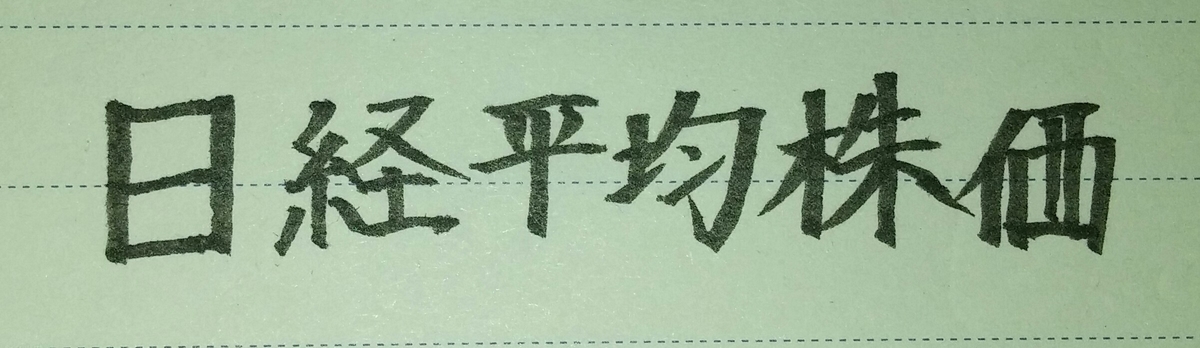 日経平均株価